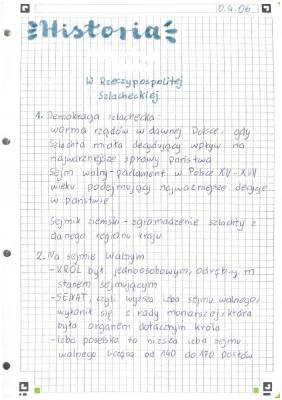 0.4.06
Historia
W Rzeczypospolitej
Szlacheckiej
1. Demokracja szlachecka
worma rządów w dawnej Polsce, gdy
Szlachta miała decydujący wpływ na
najważniejsze sprawy państwa
Sejm walny-parlament w Polsce XV-XVII
wieku podejmujący najważniejsze decyzje
w państwie
Sejmik ziemski-zgromadzenie szlachty z
danego regionu kraju
2. Na sejmie walnym
-KRÓL był jednoosobowym, odrębnym
stanem sejmującym
-SENAT, czyli wyższa izba sejmu walnego,
się z rady monarszej, która
była organem królu
-izba poselska to niższa izba sejmu
walnego licząca od 140 do 170 posłów